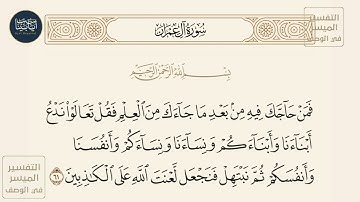 سُورَةُ آلِ عِمْرَانَ
التفسير
الميسر
في الوصف
بِسْمِ اللَّهِ الرَّحْمَٰنِ الرَّحِيمِ
فَمَنْ حَاجَّكَ فِيهِ مِنْ بَعْدِ مَا جَاءَكَ مِنَ الْعِلْمِ فَقُلْ تَعَالَوْا نَدْعُ
أَبْنَاءَنَا وَأَبْنَاءَكُمْ وَنِسَاءَنَا وَنِسَاءَكُمْ وَأَنْفُسَنَا
وَأَنْفُسَكُمْ ثُمَّ نَبْتَهِلْ فَنَجْعَل لَّعْنَتَ اللَّهِ عَلَى الْكَاذِبِينَ ٦١
التفسير
الميسر
في الوصف